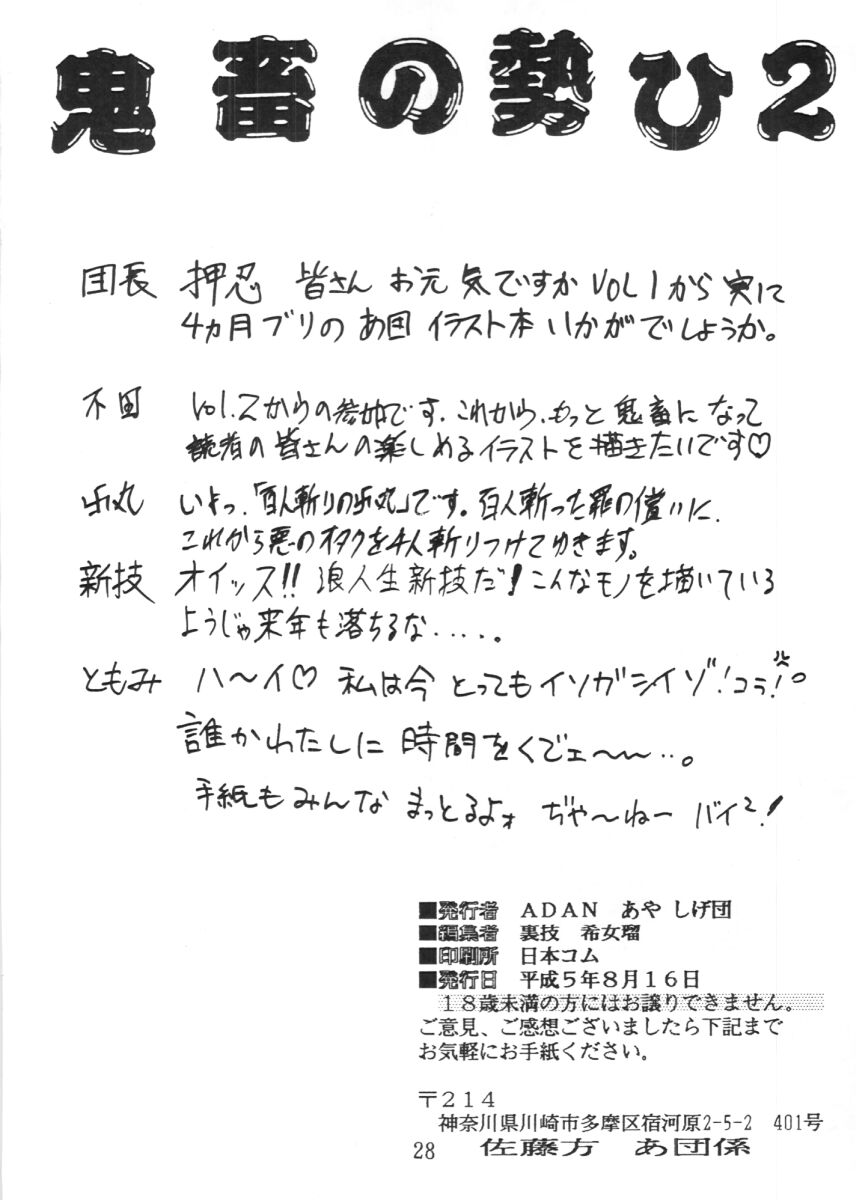 鬼畜の勢ひ2
団長 押忍 皆さん お元気ですか VOL1から 実に
4ヵ月ブリの あ団 イラスト本 いかがでしょうか。
不団 Vol.2からの参加です。これから、もっと鬼畜になって
読者の皆さんの楽しめるイラストを描きたいです♡
いよっ、「百人斬りの丸」です。百人斬った罪の償いに、
これから悪のオタクを4人斬りつけてゆきます。
新技 オイッス!! 浪人生新技だ!こんなモノを描いている
ようじゃ来年も落ちるな.....。
ともみ ハ〜イ♡ 私は今 とってもイソガシイゾ!コラ!。
誰かわたしに 時間をくでェ〜〜...。
手紙もみんな まっとるよォ ぢゃ〜ねー バイ2!
■発行者 ADAN あや しげ団
■編集者 裏技 希女瑠
■印刷所 日本コム
■発行日 平成5年8月16日
18歳未満の方にはお譲りできません。
ご意見、ご感想ございましたら下記まで
お気軽にお手紙ください。
〒214
神奈川県川崎市多摩区宿河原2-5-2 401号
28 佐藤方 あ団係